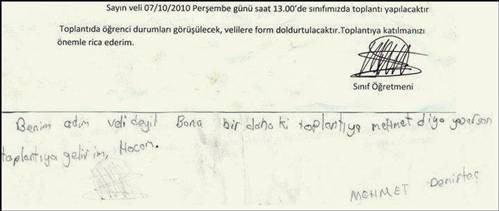 Sayın veli 07/10/2010 Perşembe günü saat 13.00'de sınıfımızda toplantı yapılacaktır
Toplantıda öğrenci durumları görüşülecek, velilere form doldurtulacaktır.Toplantıya katılmanızı
önemle rica ederim.
Sınıf Öğretmeni
Benim adım veli deyil Bana bir daha ki toplantıya mehmet diya yazarsan
toplantıya gelirim, Hocam.
MEHMET Demirtaş